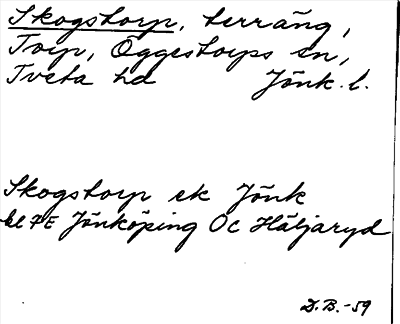 Skogstorp, terräng,
Torp, Öggestorps sn,
Tveta hd Jönk. l.
Skogstorp ek Jönk
bl 7E Jönköping Oc Häljaryd
D.B.-59